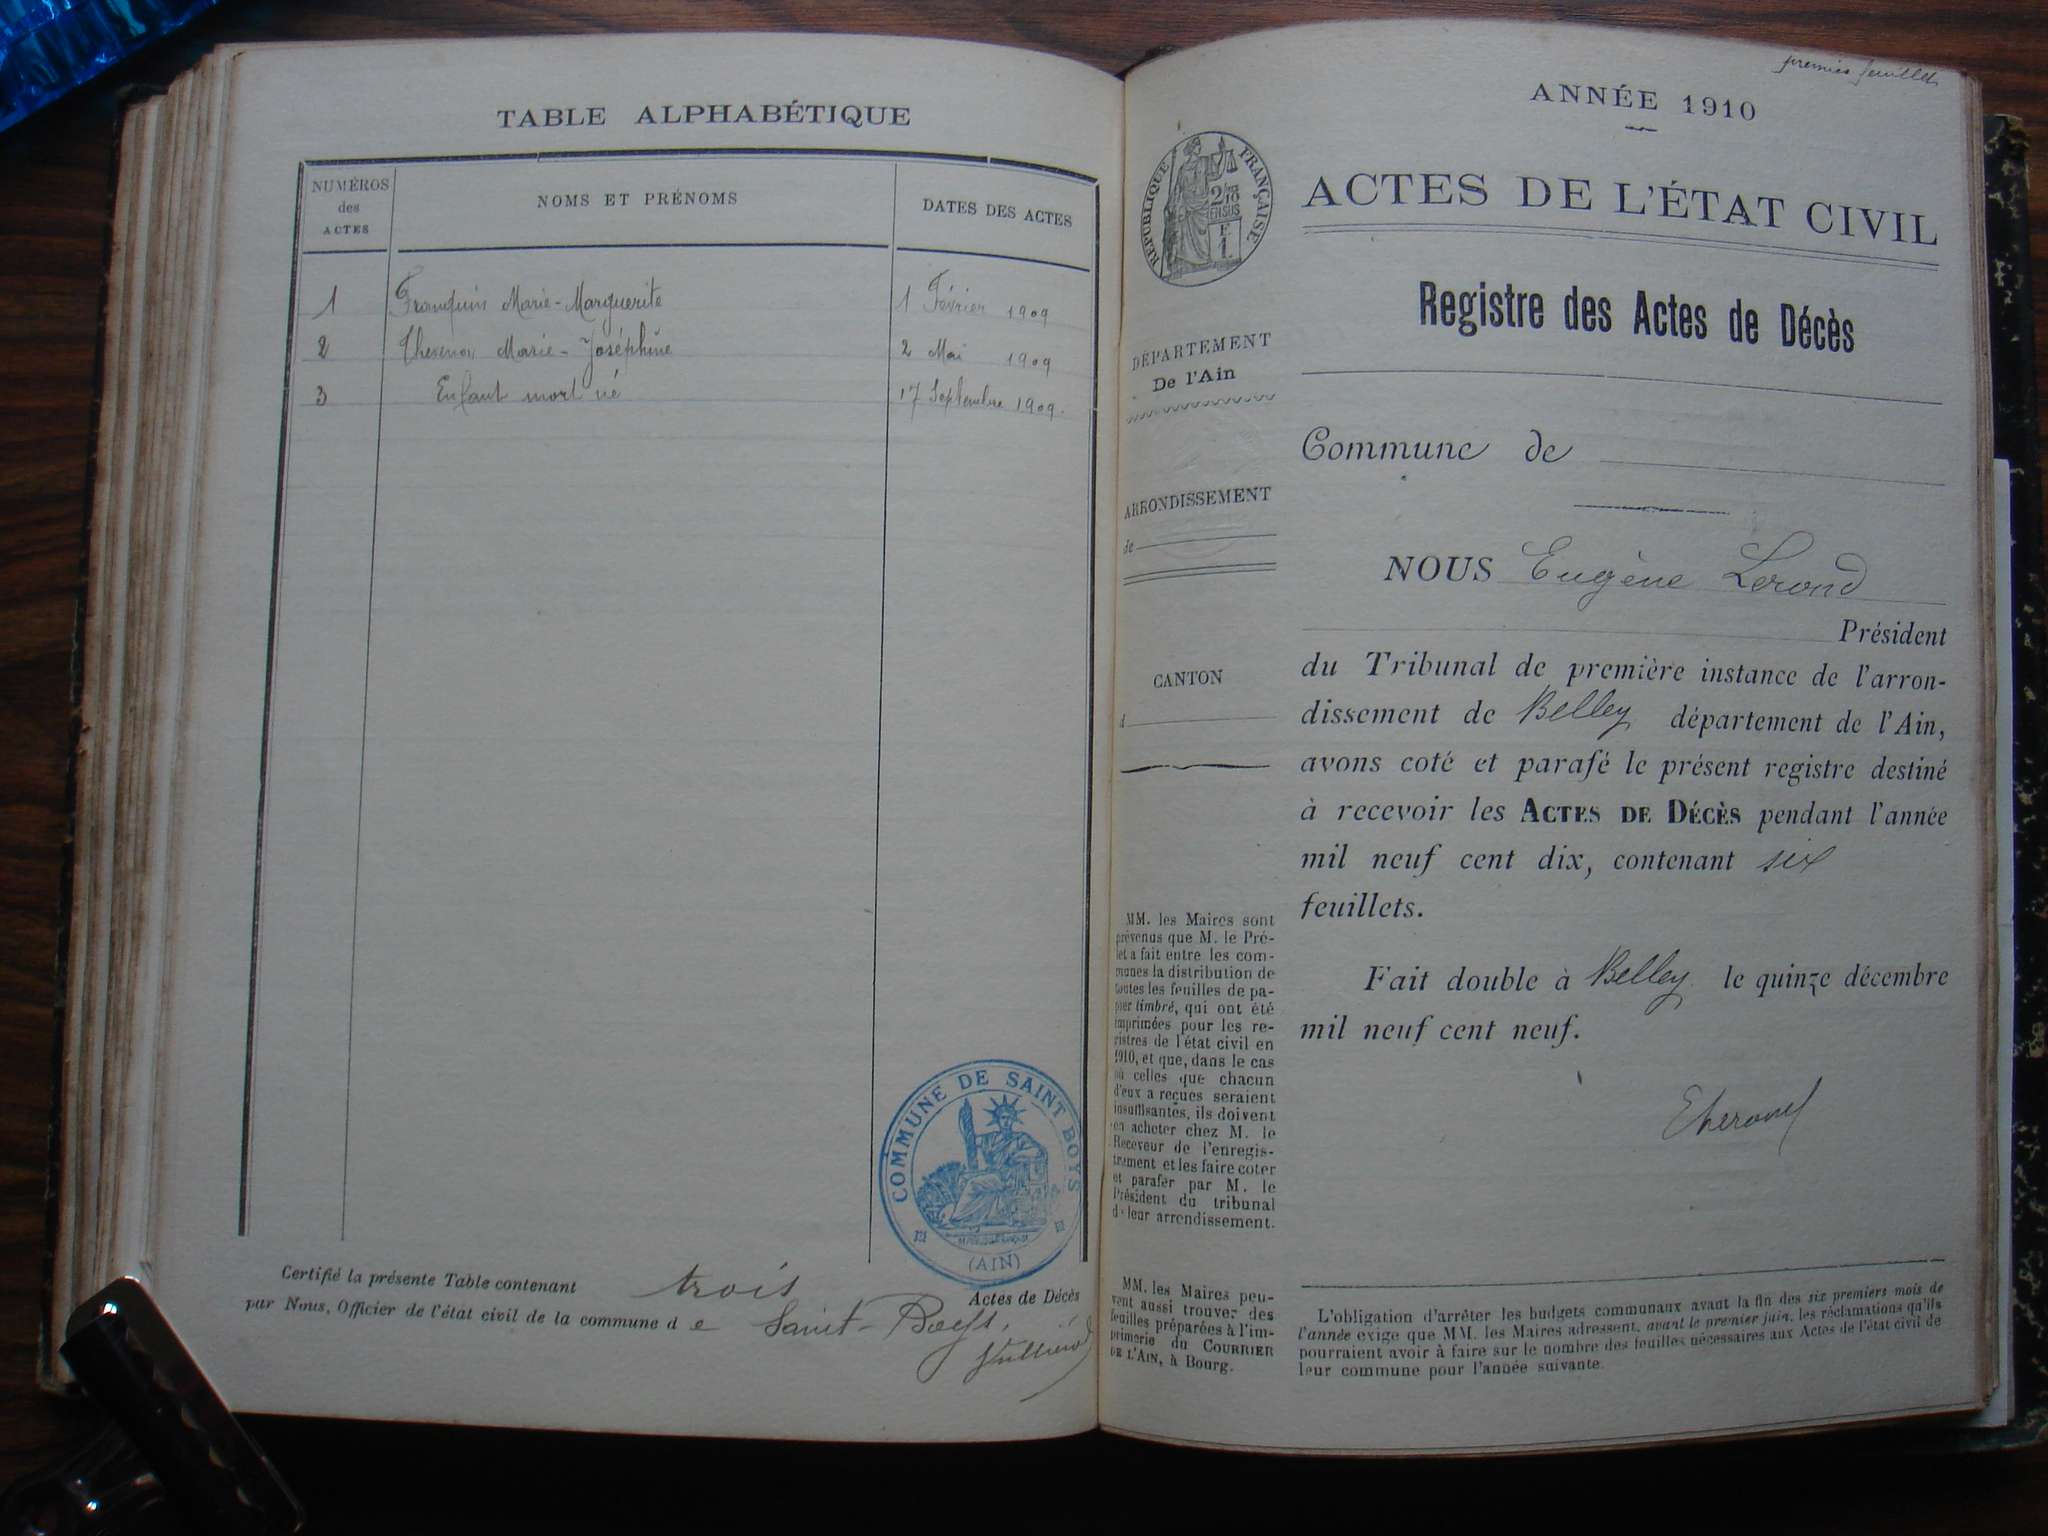 TABLE ALPHABÉTIQUE
NUMÉROS
des
ACTES
NOMS ET PRÉNOMS
DATES DES ACTES
1 Franquin Marie-Marguerite 1 Février 1909
2 Thevenon Marie-Joséphine 2 Mai 1909
3 Enfant mort né 17 Septembre 1909.
COMMUNE DE SAINT BOYS
(AIN)
Certifié la présente Table contenant trois Actes de Décès
par Nous, Officier de l'état civil de la commune de Saint-Boys.
premier feuillet
ANNÉE 1910
RÉPUBLIQUE FRANÇAISE
ACTES DE L'ÉTAT CIVIL
Registre des Actes de Décès
DÉPARTEMENT
De l'Ain
ARRONDISSEMENT
de
CANTON
d
MM. les Maires sont
prévenus que M. le Pré-
fet a fait entre les com-
munes la distribution de
toutes les feuilles de pa-
pier timbré, qui ont été
imprimées pour les re-
gistres de l'état civil en
1910, et que, dans le cas
où celles que chacun
d'eux a reçues seraient
insuffisantes, ils doivent
en acheter chez M. le
Receveur de l'enregis-
trement et les faire coter
et parafer par M. le
Président du tribunal
de leur arrondissement.
MM. les Maires peu-
vent aussi trouver des
feuilles préparées à l'im-
primerie du COURRIER
DE L'AIN, à Bourg.
Commune de
NOUS Eugène Lerond
Président
du Tribunal de première instance de l'arron-
dissement de Belley département de l'Ain,
avons coté et parafé le présent registre destiné
à recevoir les ACTES DE DÉCÈS pendant l'année
mil neuf cent dix, contenant six
feuillets.
Fait double à Belley le quinze décembre
mil neuf cent neuf.
L'obligation d'arrêter les budgets communaux avant la fin des six premiers mois de
l'année exige que MM. les Maires adressent, avant le premier juin, les réclamations qu'ils
pourraient avoir à faire sur le nombre des feuilles nécessaires aux Actes de l'état civil de
leur commune pour l'année suivante.